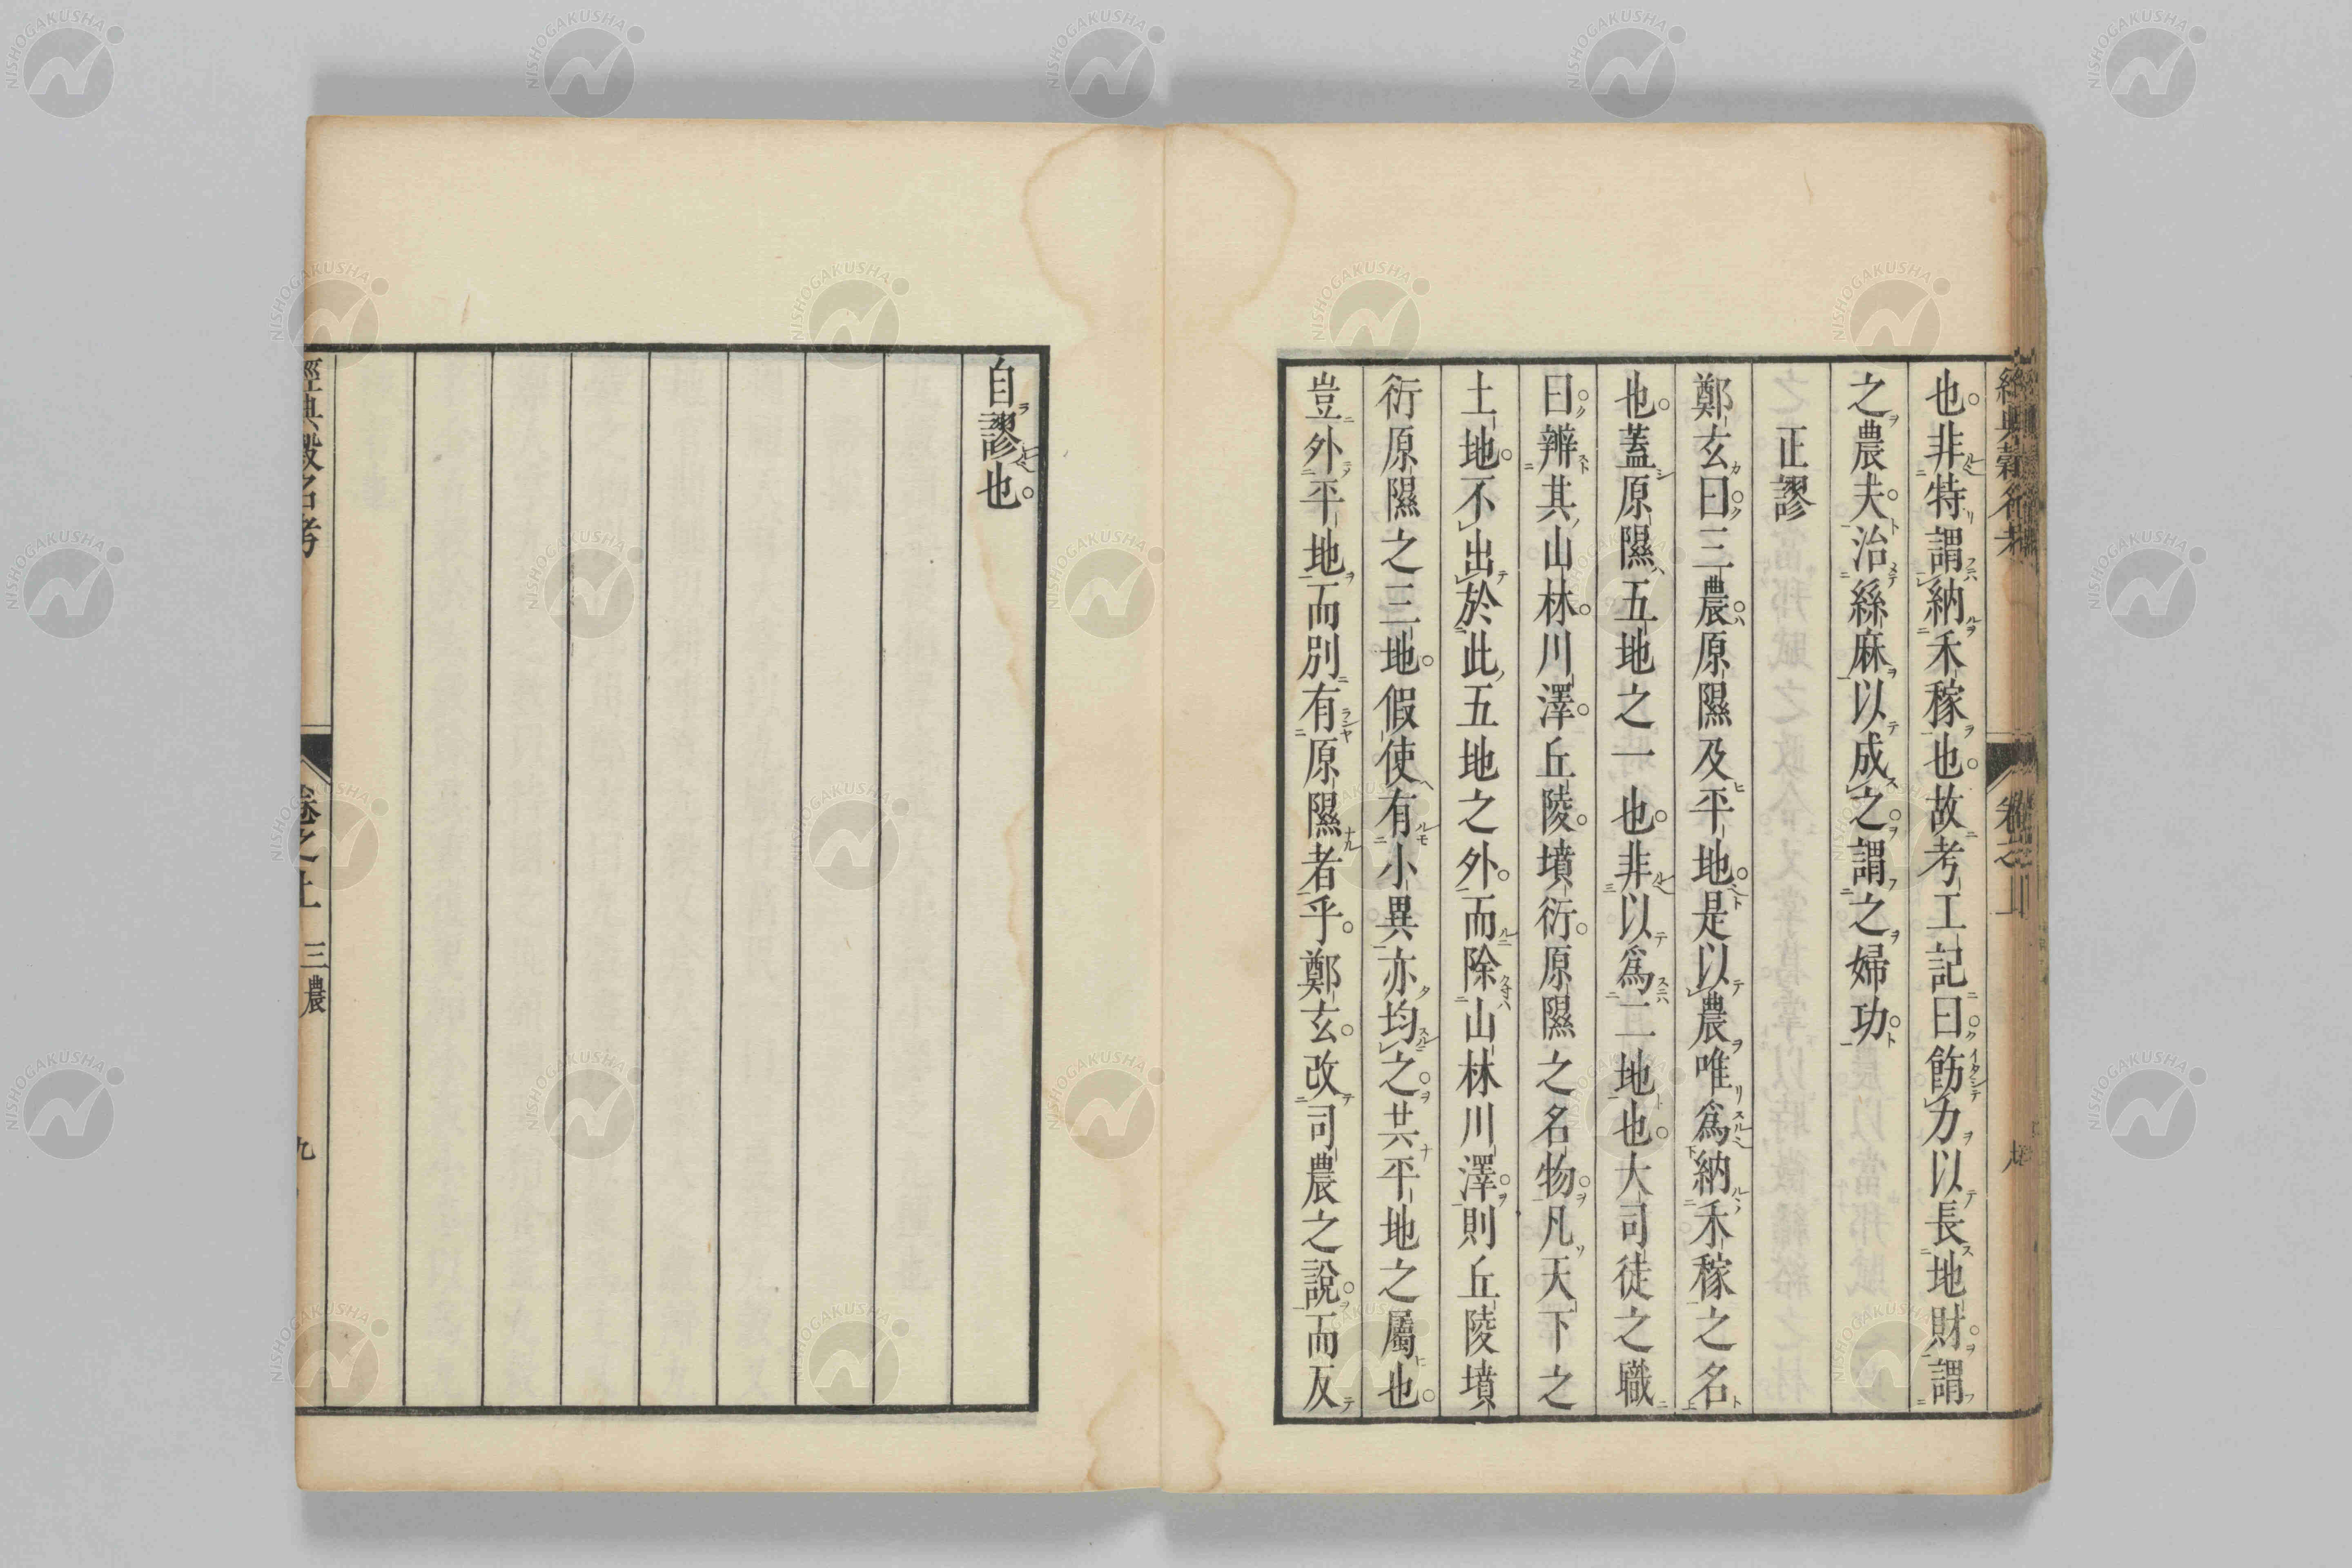 也。非特謂納禾稼也。故考工記曰。飭力以長地財。謂
之農夫。治絲麻以成之。謂之婦功。
正謬
鄭玄曰。三農。原隰及平地。是以農唯爲納禾稼之名
也。蓋原隰五地之一也。非以爲二地也。大司徒之職
曰。辨其山林。川澤。丘陵。墳衍。原隰之名物。凡天下之
土地。不出於此五地之外。而除山林川澤。則丘陵墳
衍原隰之三地。假使有小異亦均之。共平地之屬也。
豈外平地而別有原隰者乎。鄭玄。改司農之說。而反
自謬也。
經典穀名考
卷之上 三農
九
NISHOGAKUSHA